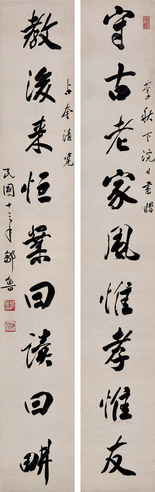 守古老家風惟孝惟友
秋下浣日書贈
占奎清覽
教後来恒業曰讀曰畊
民國十三年鄒魯